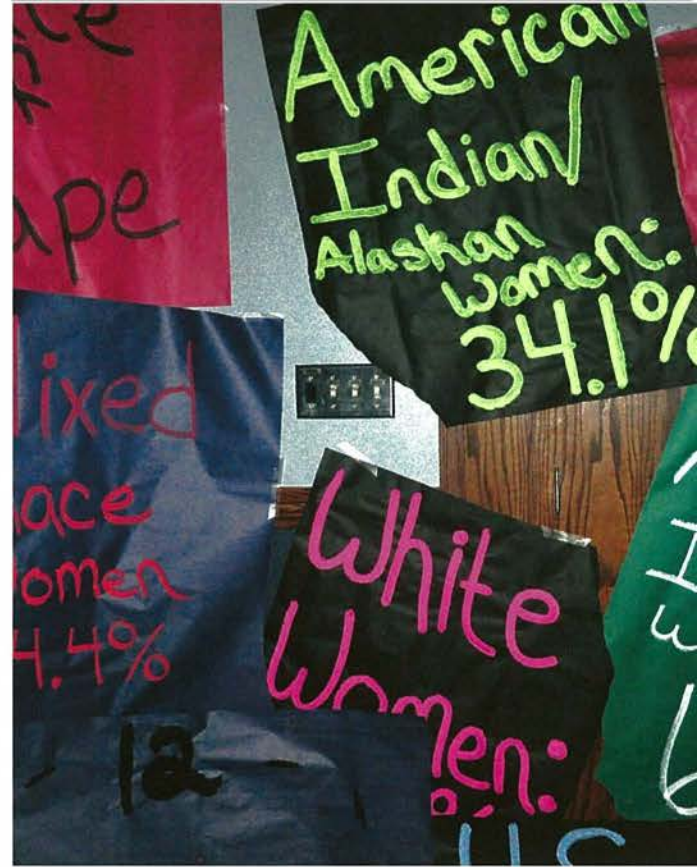 American
Indian/
Alaskan
Women:
34.1%
ixed
ace
omen
4.4%
White
Women:
12
US